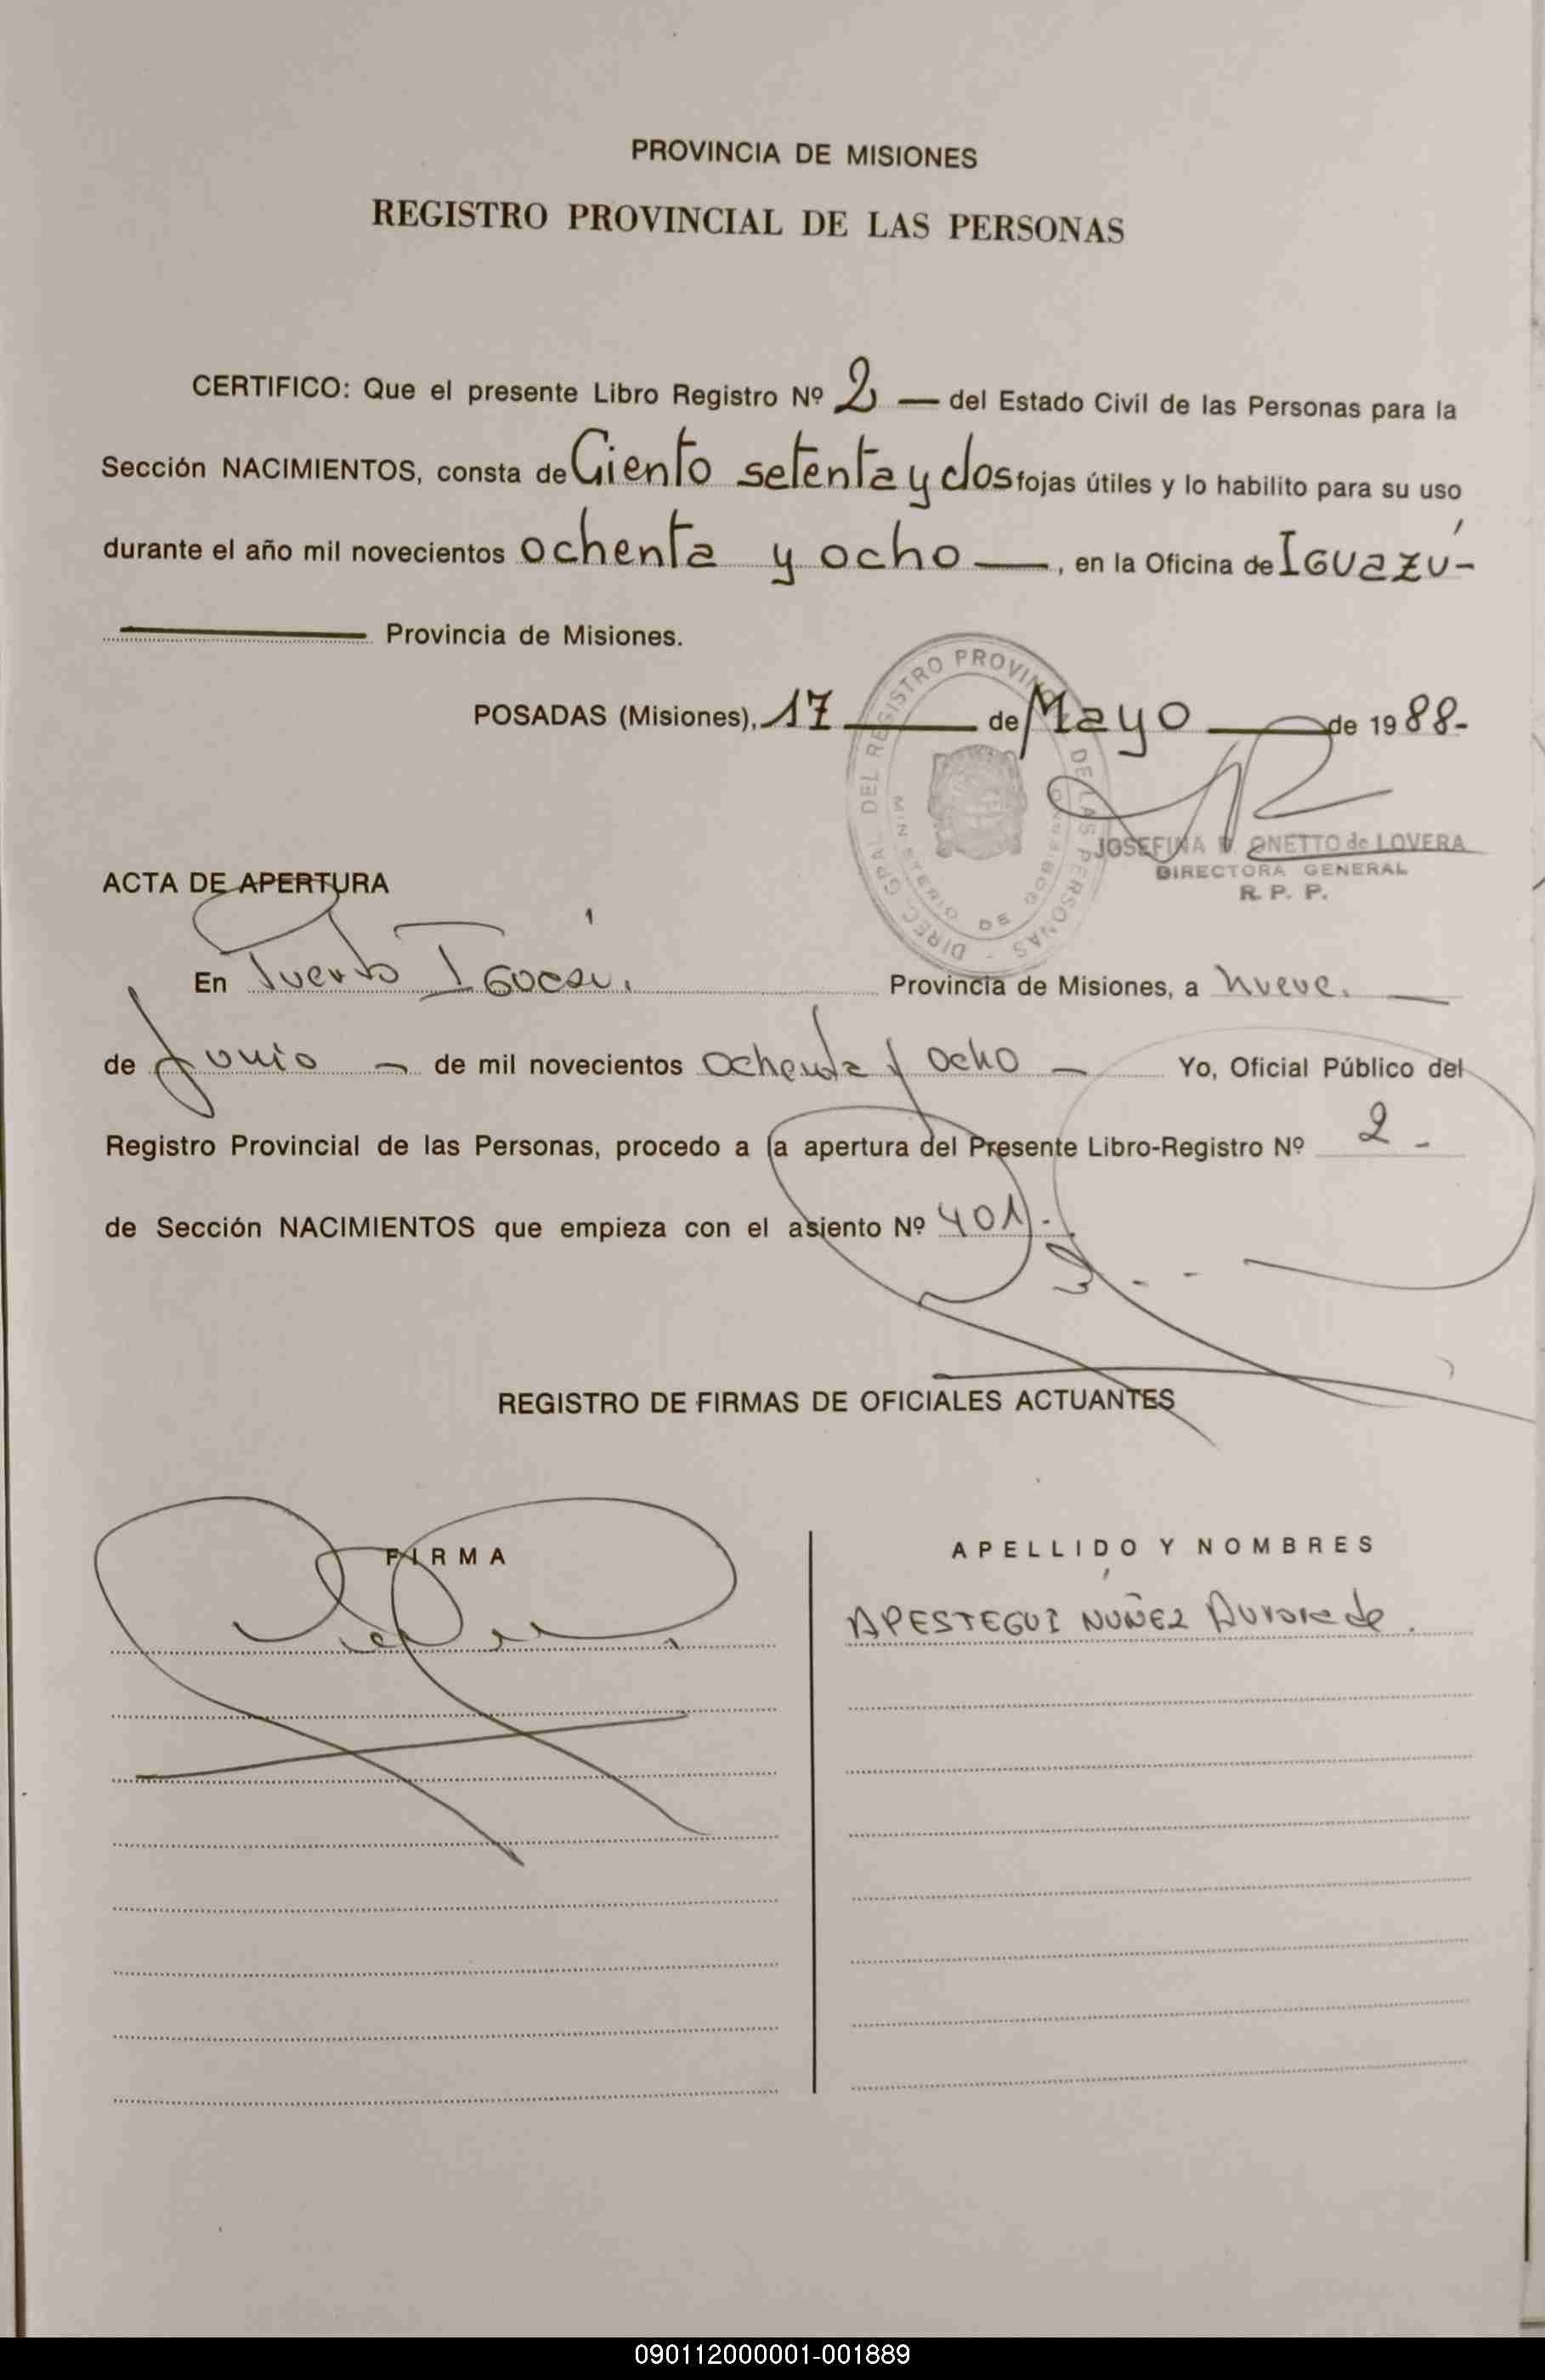 PROVINCIA DE MISIONES
REGISTRO PROVINCIAL DE LAS PERSONAS
CERTIFICO: Que el presente Libro Registro Nº 2 — del Estado Civil de las Personas para la
Sección NACIMIENTOS, consta de Ciento setenta y dos fojas útiles y lo habilito para su uso
durante el año mil novecientos ochenta y ocho —, en la Oficina de IGUAZÚ-
Provincia de Misiones.
POSADAS (Misiones), 17 de Mayo de 1988-
DIREC. GRAL. DEL REGISTRO PROVINCIAL DE LAS PERSONAS
MINISTERIO DE GOBIERNO
JOSEFINA ONETTO de LOVERA
DIRECTORA GENERAL
R. P. P.
ACTA DE APERTURA
En Puerto Provincia de Misiones, a nueve. —
de Junio — de mil novecientos ochenta y ocho — Yo, Oficial Público del
Registro Provincial de las Personas, procedo a la apertura del Presente Libro-Registro Nº 2 -
de Sección NACIMIENTOS que empieza con el asiento Nº 401.
REGISTRO DE FIRMAS DE OFICIALES ACTUANTES
FIRMA
APELLIDO Y NOMBRES
APESTEGUI NÚÑEZ Aurora de.
090112000001-001889